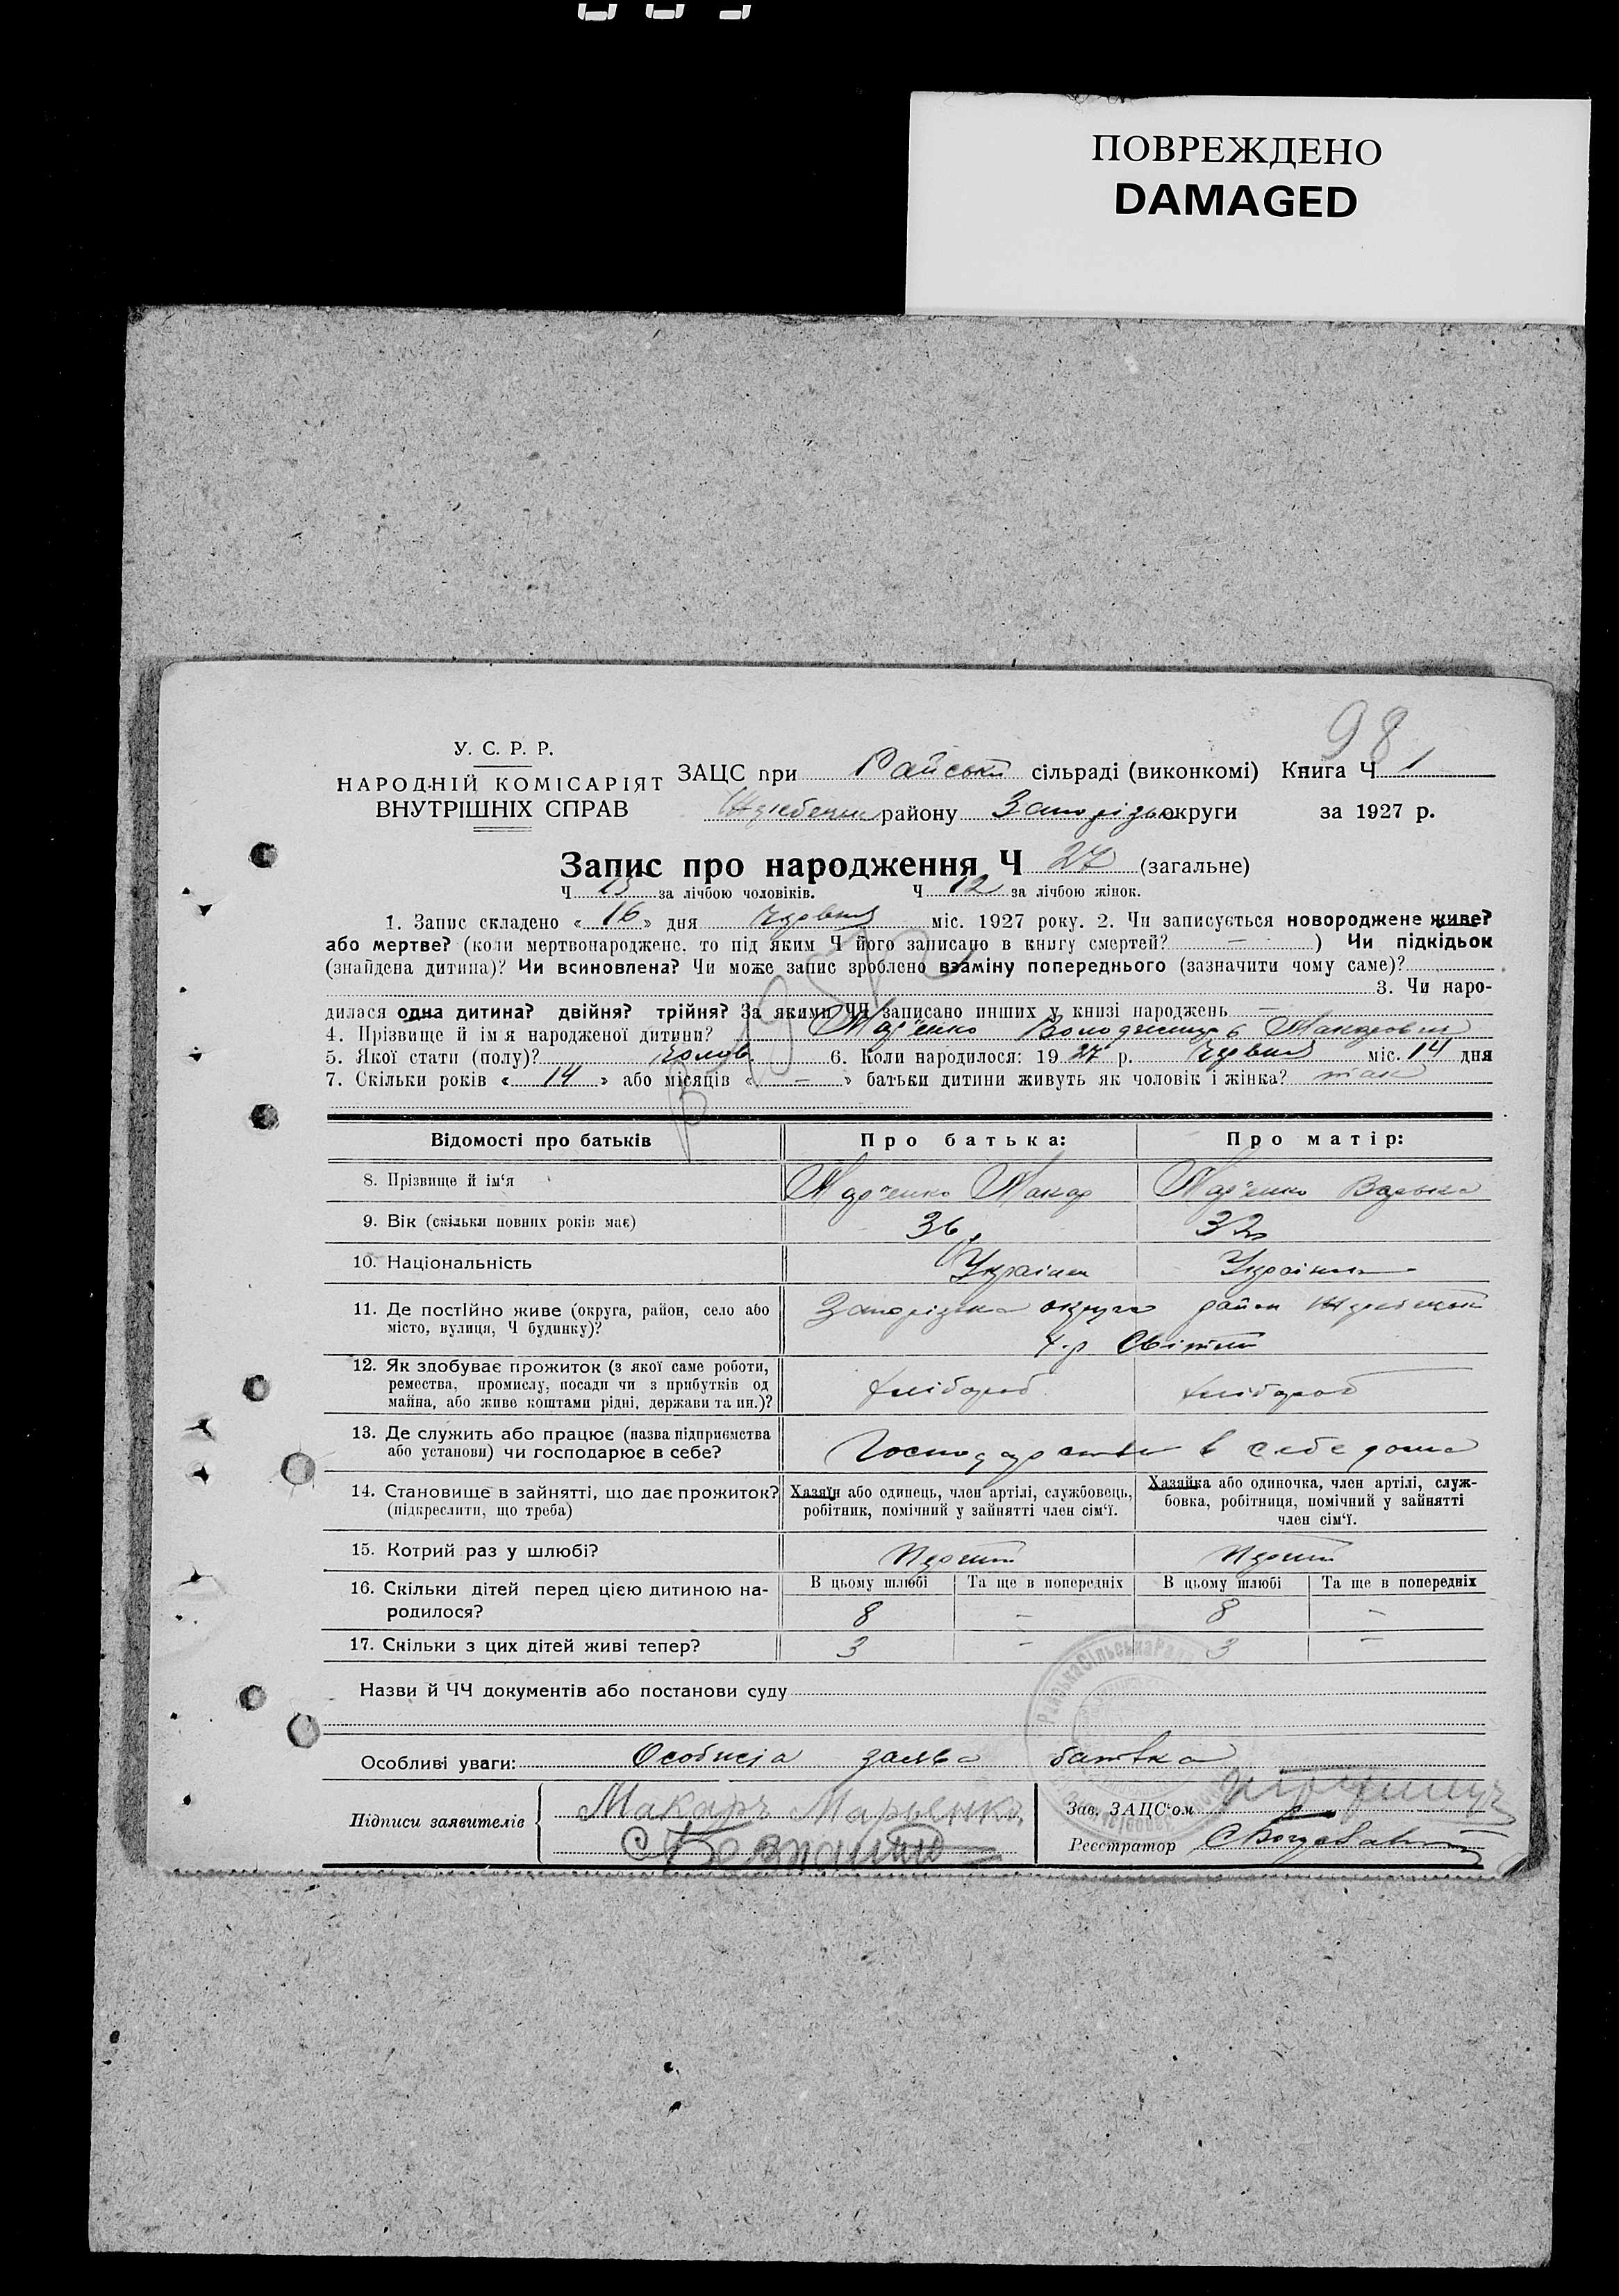 ПОВРЕЖДЕНО
DAMAGED
98
У. С. Р. Р.
НАРОДНІЙ КОМІСАРІЯТ
ВНУТРІШНІХ СПРАВ
ЗАЦС при Райській сільраді (виконкомі) Книга Ч 1
району Запорізької округи за 1927 р.
Запис про народження Ч 27 (загальне)
Ч 15 за лічбою чоловіків. Ч 12 за лічбою жінок.
1. Запис складено « 16 » дня Червня міс. 1927 року. 2. Чи записується новороджене живе?
або мертве? (коли мертвонароджене, то під яким Ч його записано в книгу смертей? — ) Чи підкідьок
(знайдена дитина)? Чи всиновлена? Чи може запис зроблено взаміну попереднього (зазначити чому саме)?
3. Чи наро-
дилася одна дитина? двійня? трійня? За якими ЧЧ записано инших у книзі народжень —
4. Прізвище й ім'я народженої дитини? Мар'енко Володимир Макарович
5. Якої стати (полу)? чолов. 6. Коли народилося: 19 27 р. Червня міс. 14 дня
7. Скільки років « 14 » або місяців « — » батьки дитини живуть як чоловік і жінка? так
Відомості про батьків Про батька: Про матір:
8. Прізвище й ім'я Мар'енко Макар Мар'енко Варька
9. Вік (скільки повних років має) 36 32
10. Національність Україн Україн
11. Де постійно живе (округа, район, село або Запорізька округа район
місто, вулиця, Ч будинку)? х-р
12. Як здобуває прожиток (з якої саме роботи,
ремества, промислу, посади чи з прибутків од хлібороб хлібороб
майна, або живе коштами рідні, держави та ин.)?
13. Де служить або працює (назва підприємства
або установи) чи господарює в себе? в себе дома
14. Становище в зайнятті, що дає прожиток? Хазяїн або одинець, член артілі, службовець, Хазяйка або одиночка, член артілі, служ-
(підкреслити, що треба) робітник, помічний у зайнятті член сім'ї. бовка, робітниця, помічний у зайнятті
член сім'ї.
15. Котрий раз у шлюбі?
16. Скільки дітей перед цією дитиною на- В цьому шлюбі Та ще в попередніх В цьому шлюбі Та ще в попередніх
родилося? 8 — 8 —
17. Скільки з цих дітей живі тепер? 3 — 3 —
Назви й ЧЧ документів або постанови суду
Особливі уваги: Особиста заява батька
Підписи заявителів Макаръ Марьенко Зав. ЗАЦС'ом
Реєстратор